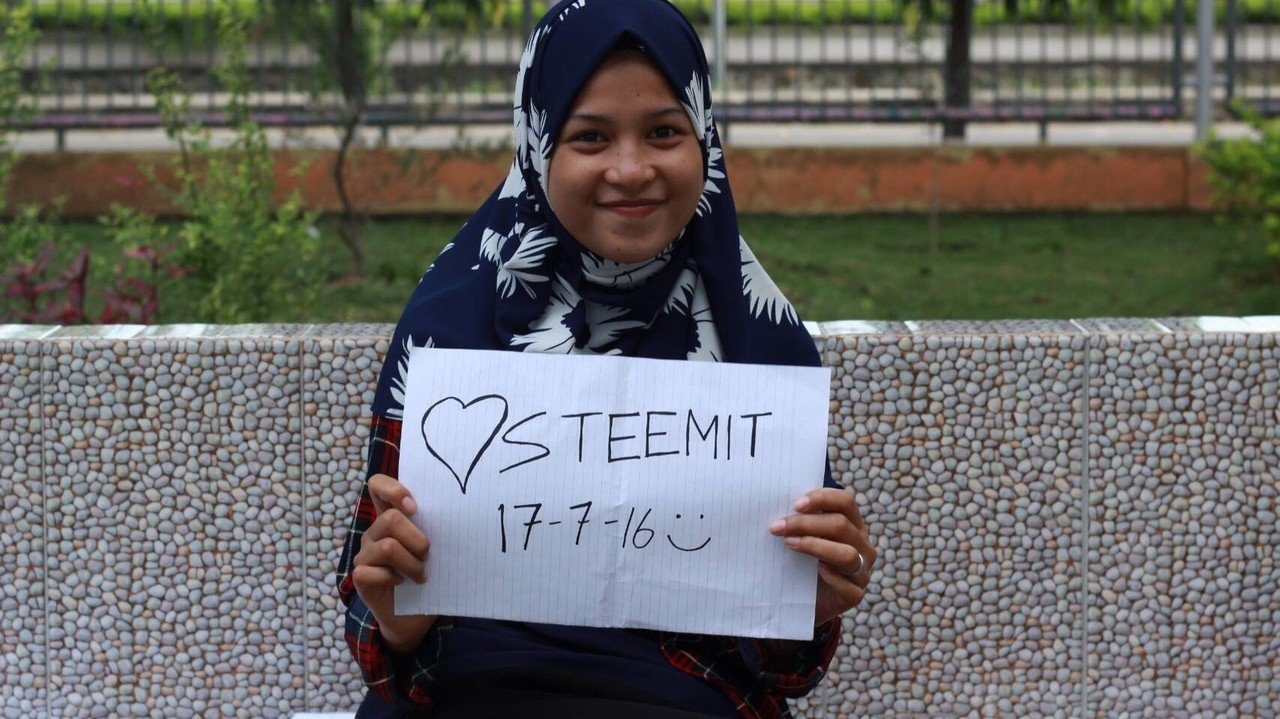 ♡STEEMIT
17-7-16 :)